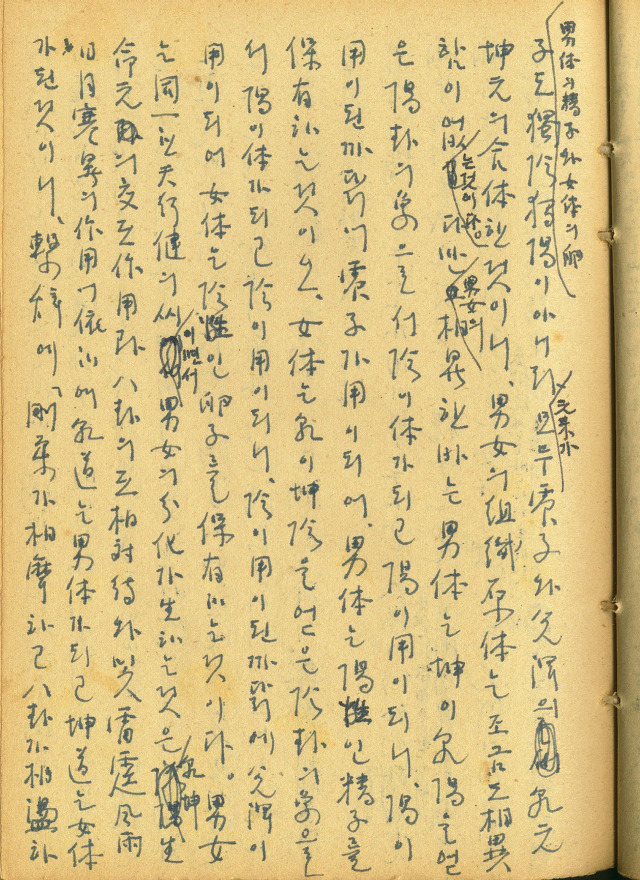 男体의 精子와 女体의 卵
子도 獨陰獨陽이 아니라 元来가 모두 震子와 兌澤의 乾元
坤元의 合体된 것이니, 男女의 組織原体는 조금도 相異
함이 없는 것이나 다만 男女의 相異한 바는 男体는 坤이 乾陽을 얻
은 陽卦의 象으로서 陰이 体가 되고 陽이 用이 되니, 陽이
用이 된 까닭에 震子가 用이 되어, 男体는 陽性인 精子를
保有하는 것이오, 女体는 乾이 坤陰을 얻은 陰卦의 象으로
서 陽이 体가 되고 陰이 用이 되니, 陰이 用이 된 까닭에 兌澤이
用이 되어 女体는 陰性인 卵子를 保有하는 것이다。男女
는 同一한 天行健의 이면서 男女의 分化가 生하는 것은 乾坤生
命元의 交互作用과 八卦의 互相対待와 및 雷霆風雨
日月寒暑의 作用에 依하여 乾道는 男体가 되고 坤道는 女体
가 된 것이니, 繫辞에「剛柔가 相摩하고 八卦가 相盪하